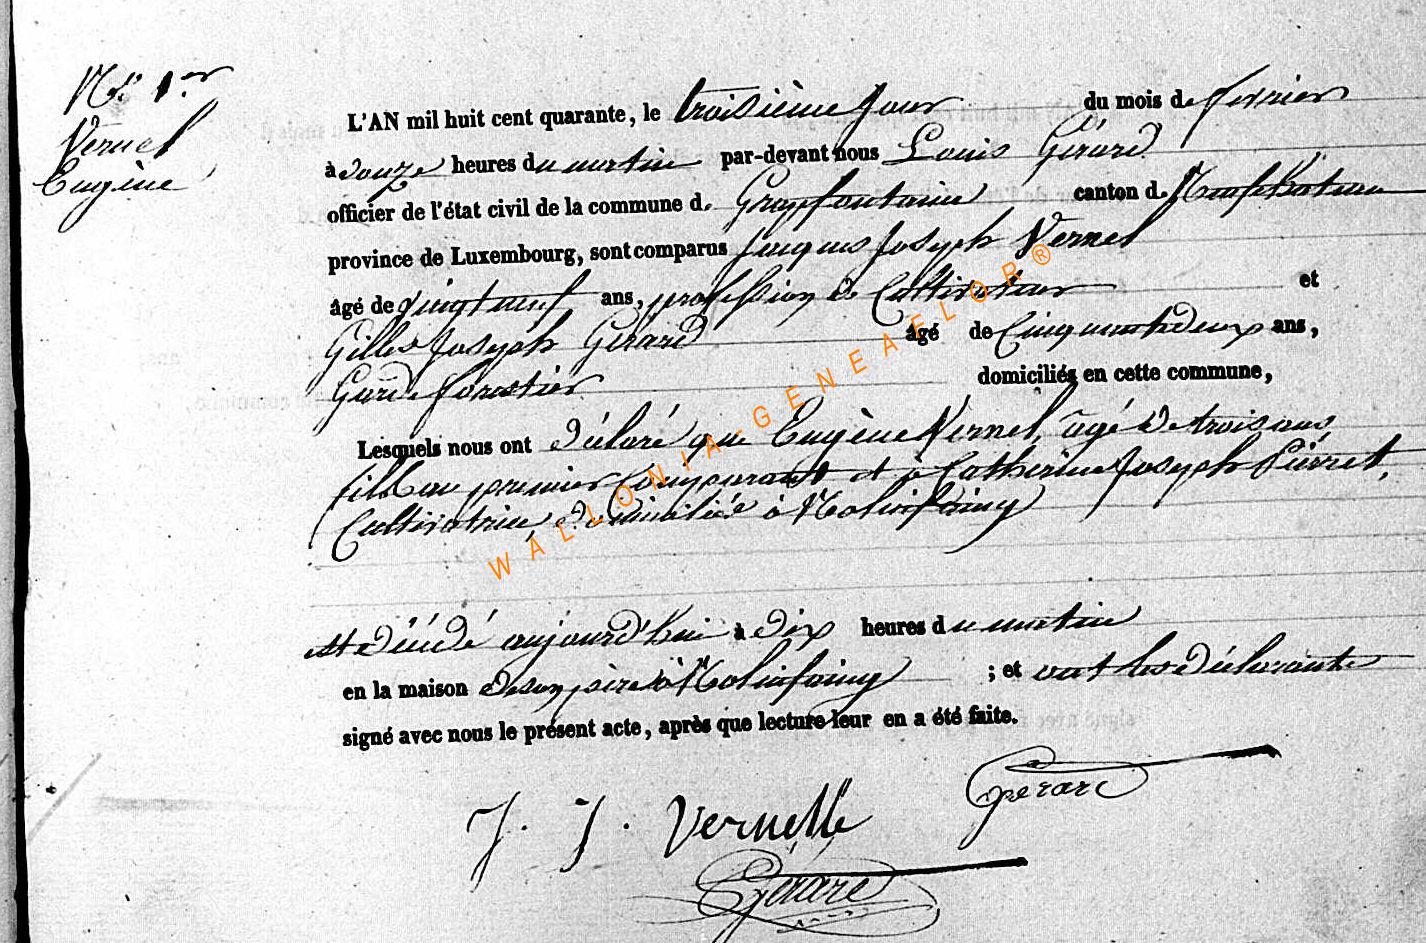 N.º 1.er
Vernel
Eugène
L'AN mil huit cent quarante, le troisième jour du mois de fevrier
à douze heures du matin par-devant nous Louis Gérard
officier de l'état civil de la commune de Grapfontaine canton de Neufchateau
province de Luxembourg, sont comparus Jacques Joseph Vernel
âgé de vingt neuf ans, profession de Cultivateur et
Gilles Joseph Gérard âgé de Cinquante deux ans,
Garde forestier domiciliés en cette commune,
Lesquels nous ont déclaré que Eugène Vernel, agé de trois ans
fils au premier Comparant et à Cathérine Joseph Pierret,
Cultivatrice, domiciliée à Molinfaing
est décédé aujourd'hui à dix heures du matin
en la maison de son père à Molinfaing ; et ont les déclarants
signé avec nous le présent acte, après que lecture leur en a été faite.
Gerard
J. J. Vernelle
Gérard
WALLONIA-GENEAELOR®